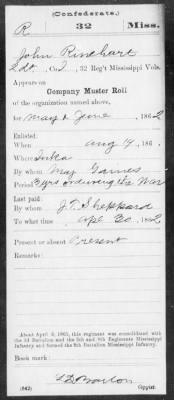 (Confederate.)
R 32 Miss.
John Rinehart
2d Co. I, 32 Reg't Mississippi Vols.
Appears on
Company Muster Roll
of the organization named above,
for May & June, 1862
Enlisted:
When Aug 9, 186
Where Iuka
By whom Maj Gaines
Period 3 yrs or during the War
Last paid:
By whom J. T. Sheppard
To what time Apl 30, 1862
Present or absent Present
Remarks:
About April 9, 1865, this regiment was consolidated with
the 3d Battalion and the 5th and 8th Regiments Mississippi
Infantry and formed the 8th Battalion Mississippi Infantry.
Book mark:
(642) Barton
Copyist.